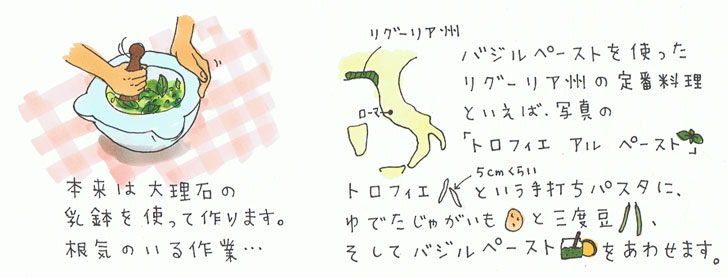 本来は大理石の
乳鉢を使って作ります。
根気のいる作業…
リグーリア州
ローマ
バジルペーストを使った
リグーリア州の定番料理
といえば、写真の
「トロフィエ アル ペースト」
5cmくらい
トロフィエ という手打ちパスタに、
ゆでたじゃがいも と三度豆 、
そしてバジルペースト をあわせます。